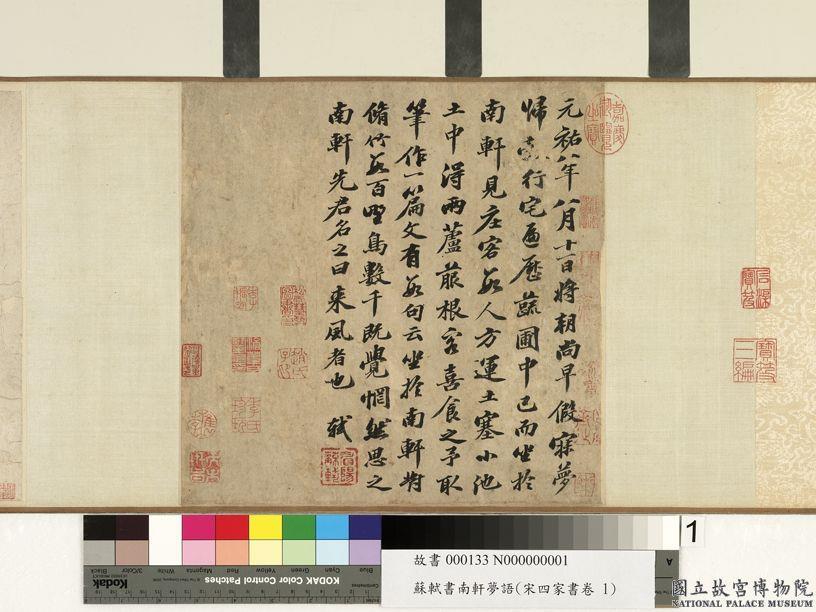 元祐八年八月十一日將朝尚早假寐夢
歸縠行宅遍歷蔬圃中已而坐於
南軒見庄客數人方運土塞小池
土中得兩蘆菔根客喜食之予取
筆作一篇文有數句云坐於南軒對
脩竹數百野鳥數千既覺惘然思之
南軒先君名之曰來風者也 軾
嘉慶御覽之寶
石渠寶笈
寶笈三編
眉陽蘇軾
1
Kodak
KODAK Color Control Patches
Black
3/Color
White
Magenta
Red
Yellow
Green
Cyan
Blue
A
故書 000133 N000000001
蘇軾書南軒夢語(宋四家書卷 1)
國立故宮博物院
NATIONAL PALACE MUSEUM